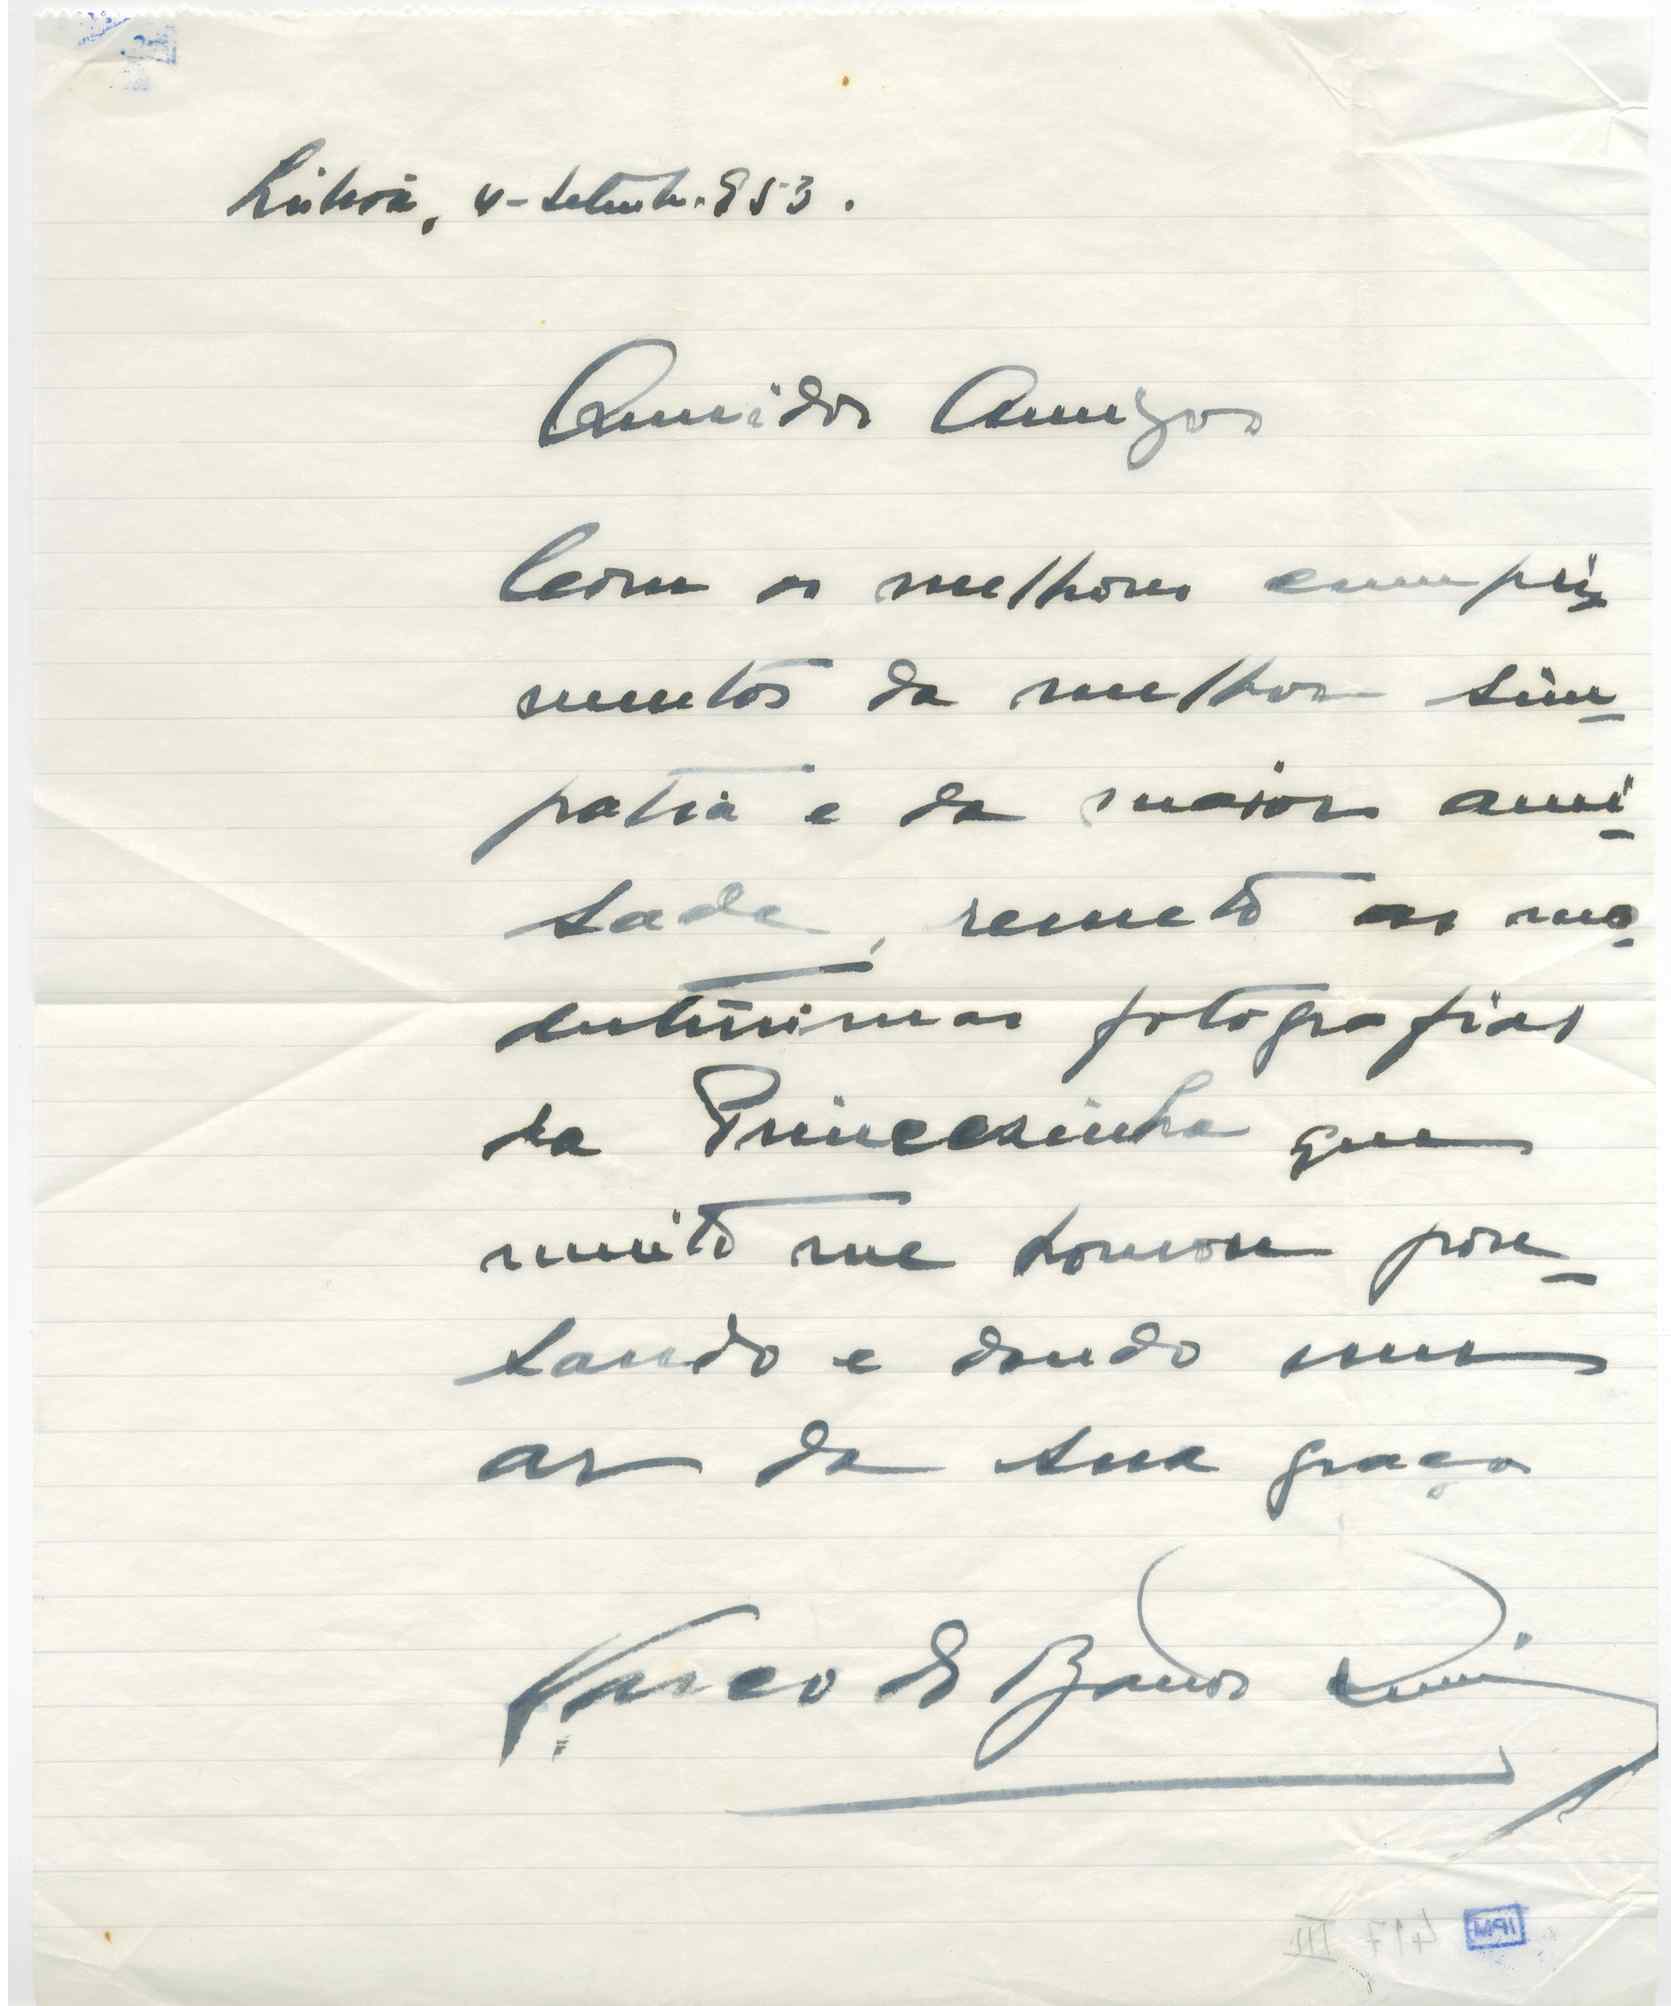 Lisboa, 4-Setemb. 953.
Queridos Amigos
Com os melhores cumpri-
mentos da melhor sim-
patia e da maior ami-
sade, remeto as mo-
destissimas fotografias
da Princesinha que
muito me honrou pou-
sando e dando um
ar da sua graça
Vasco de Barros
417 III
IPM